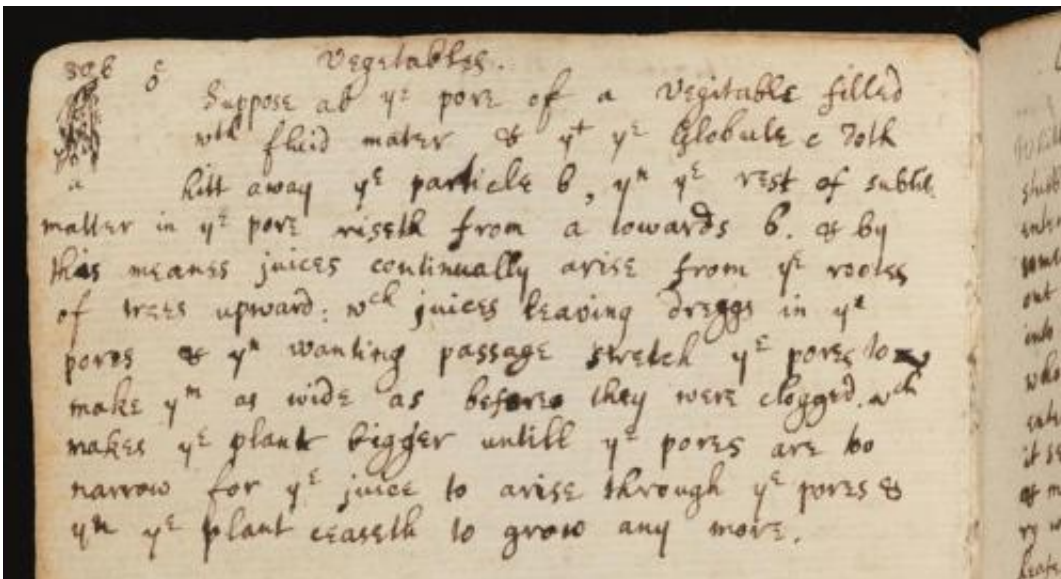 Vegetables.
Suppose ab yᵉ pore of a Vegitable filled
wᵗʰ fluid mater & yᵗ yᵉ Globule c doth
hitt away yᵉ particle b, yⁿ yᵉ rest of subtile
matter in yᵉ pore riseth from a towards b. & by
this meanes juices continually arise from yᵉ rootes
of trees upward: wᶜʰ juices leaving dreggs in yᵉ
pores & yⁿ wanting passage stretch yᵉ pores to
make yᵐ as wide as before they were clogged. wᶜʰ
makes yᵉ plant bigger untill yᵉ pores are too
narrow for yᵉ juice to arise through yᵉ pores &
yⁿ yᵉ plant ceaseth to grow any more.
c
a